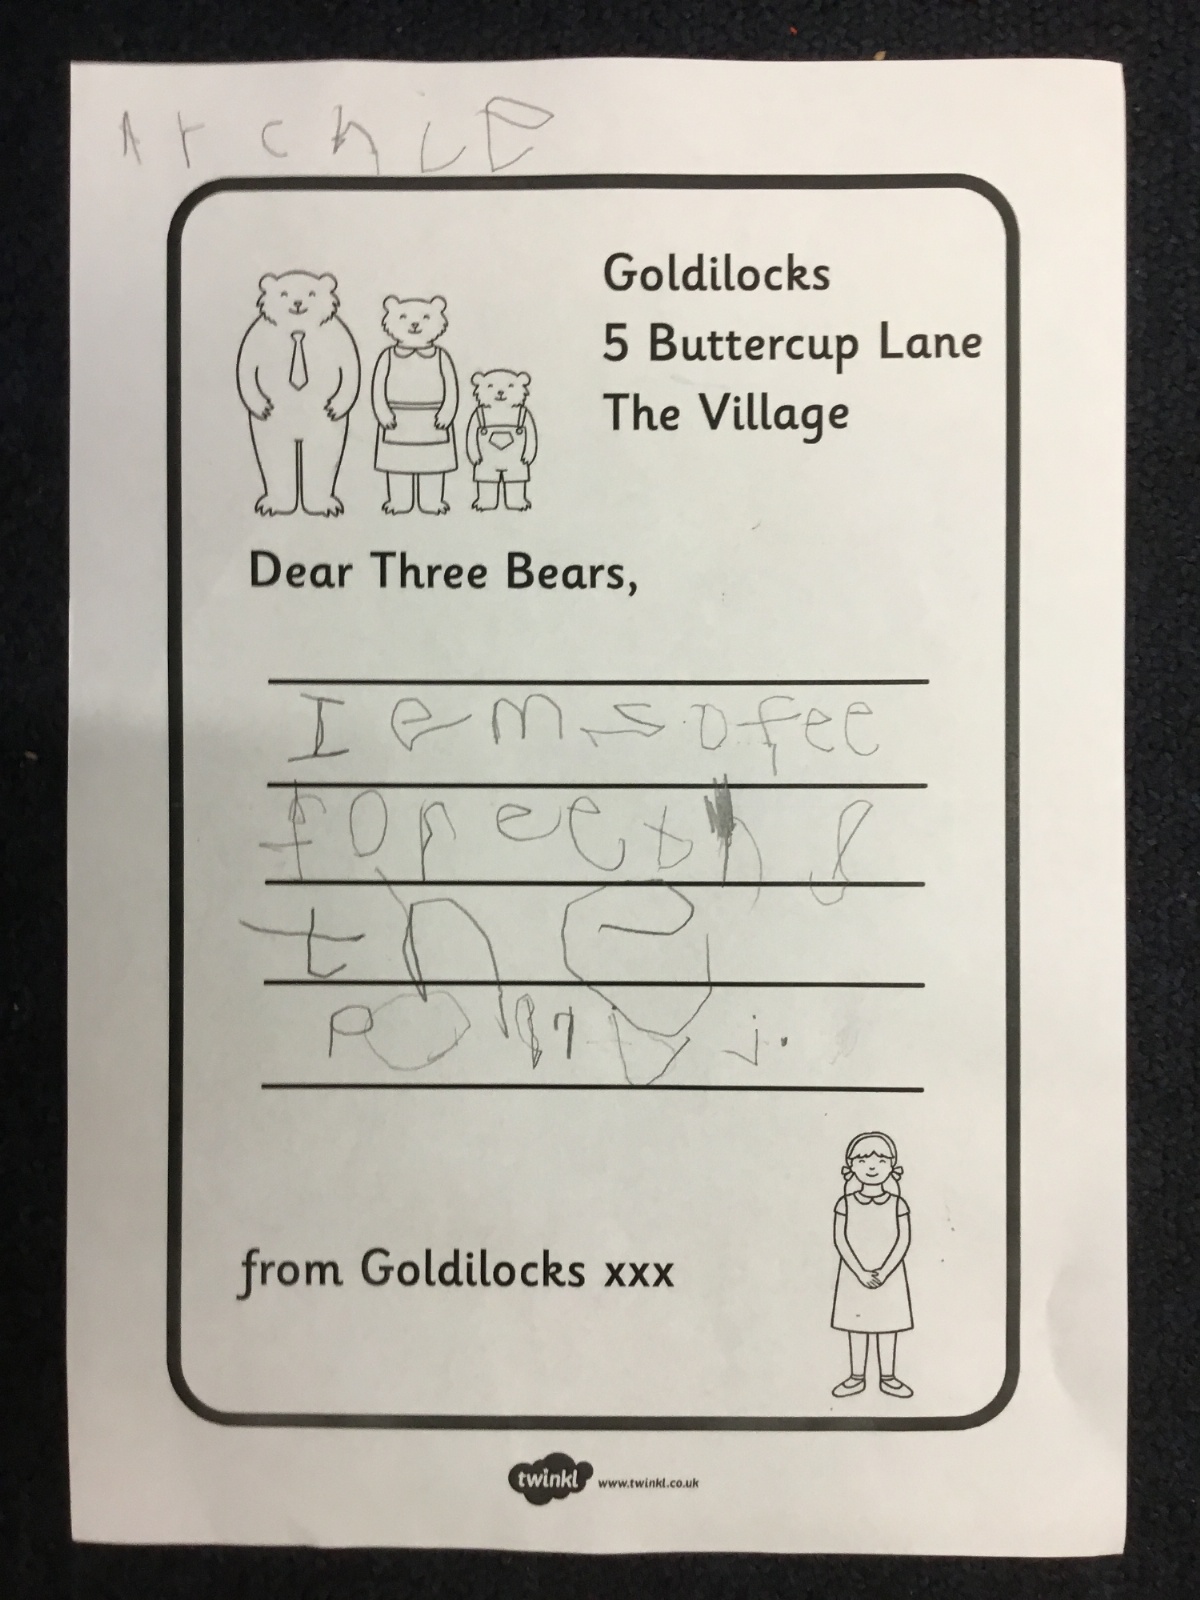 Archie
Goldilocks
5 Buttercup Lane
The Village
Dear Three Bears,
I em sofee
for eetn g
the
from Goldilocks xxx
twinkl www.twinkl.co.uk